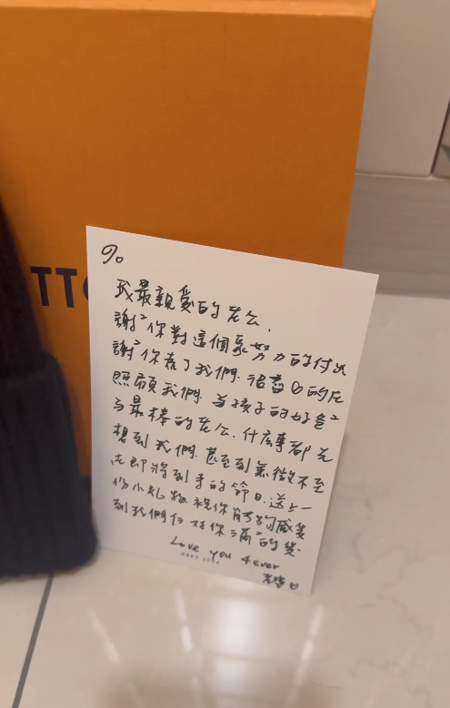 TT
To
我最親愛的老公,
謝²你對這個家努力的付出
謝²你為了我們.
照顧我們.當孩子的好爸²
與最棒的老公.什麼事都先
想到我們.甚至到無微不至
在即將到 的節日.送上一
份小禮物 祝你能夠感受
到我們 對你滿²的愛.
Love you 4ever